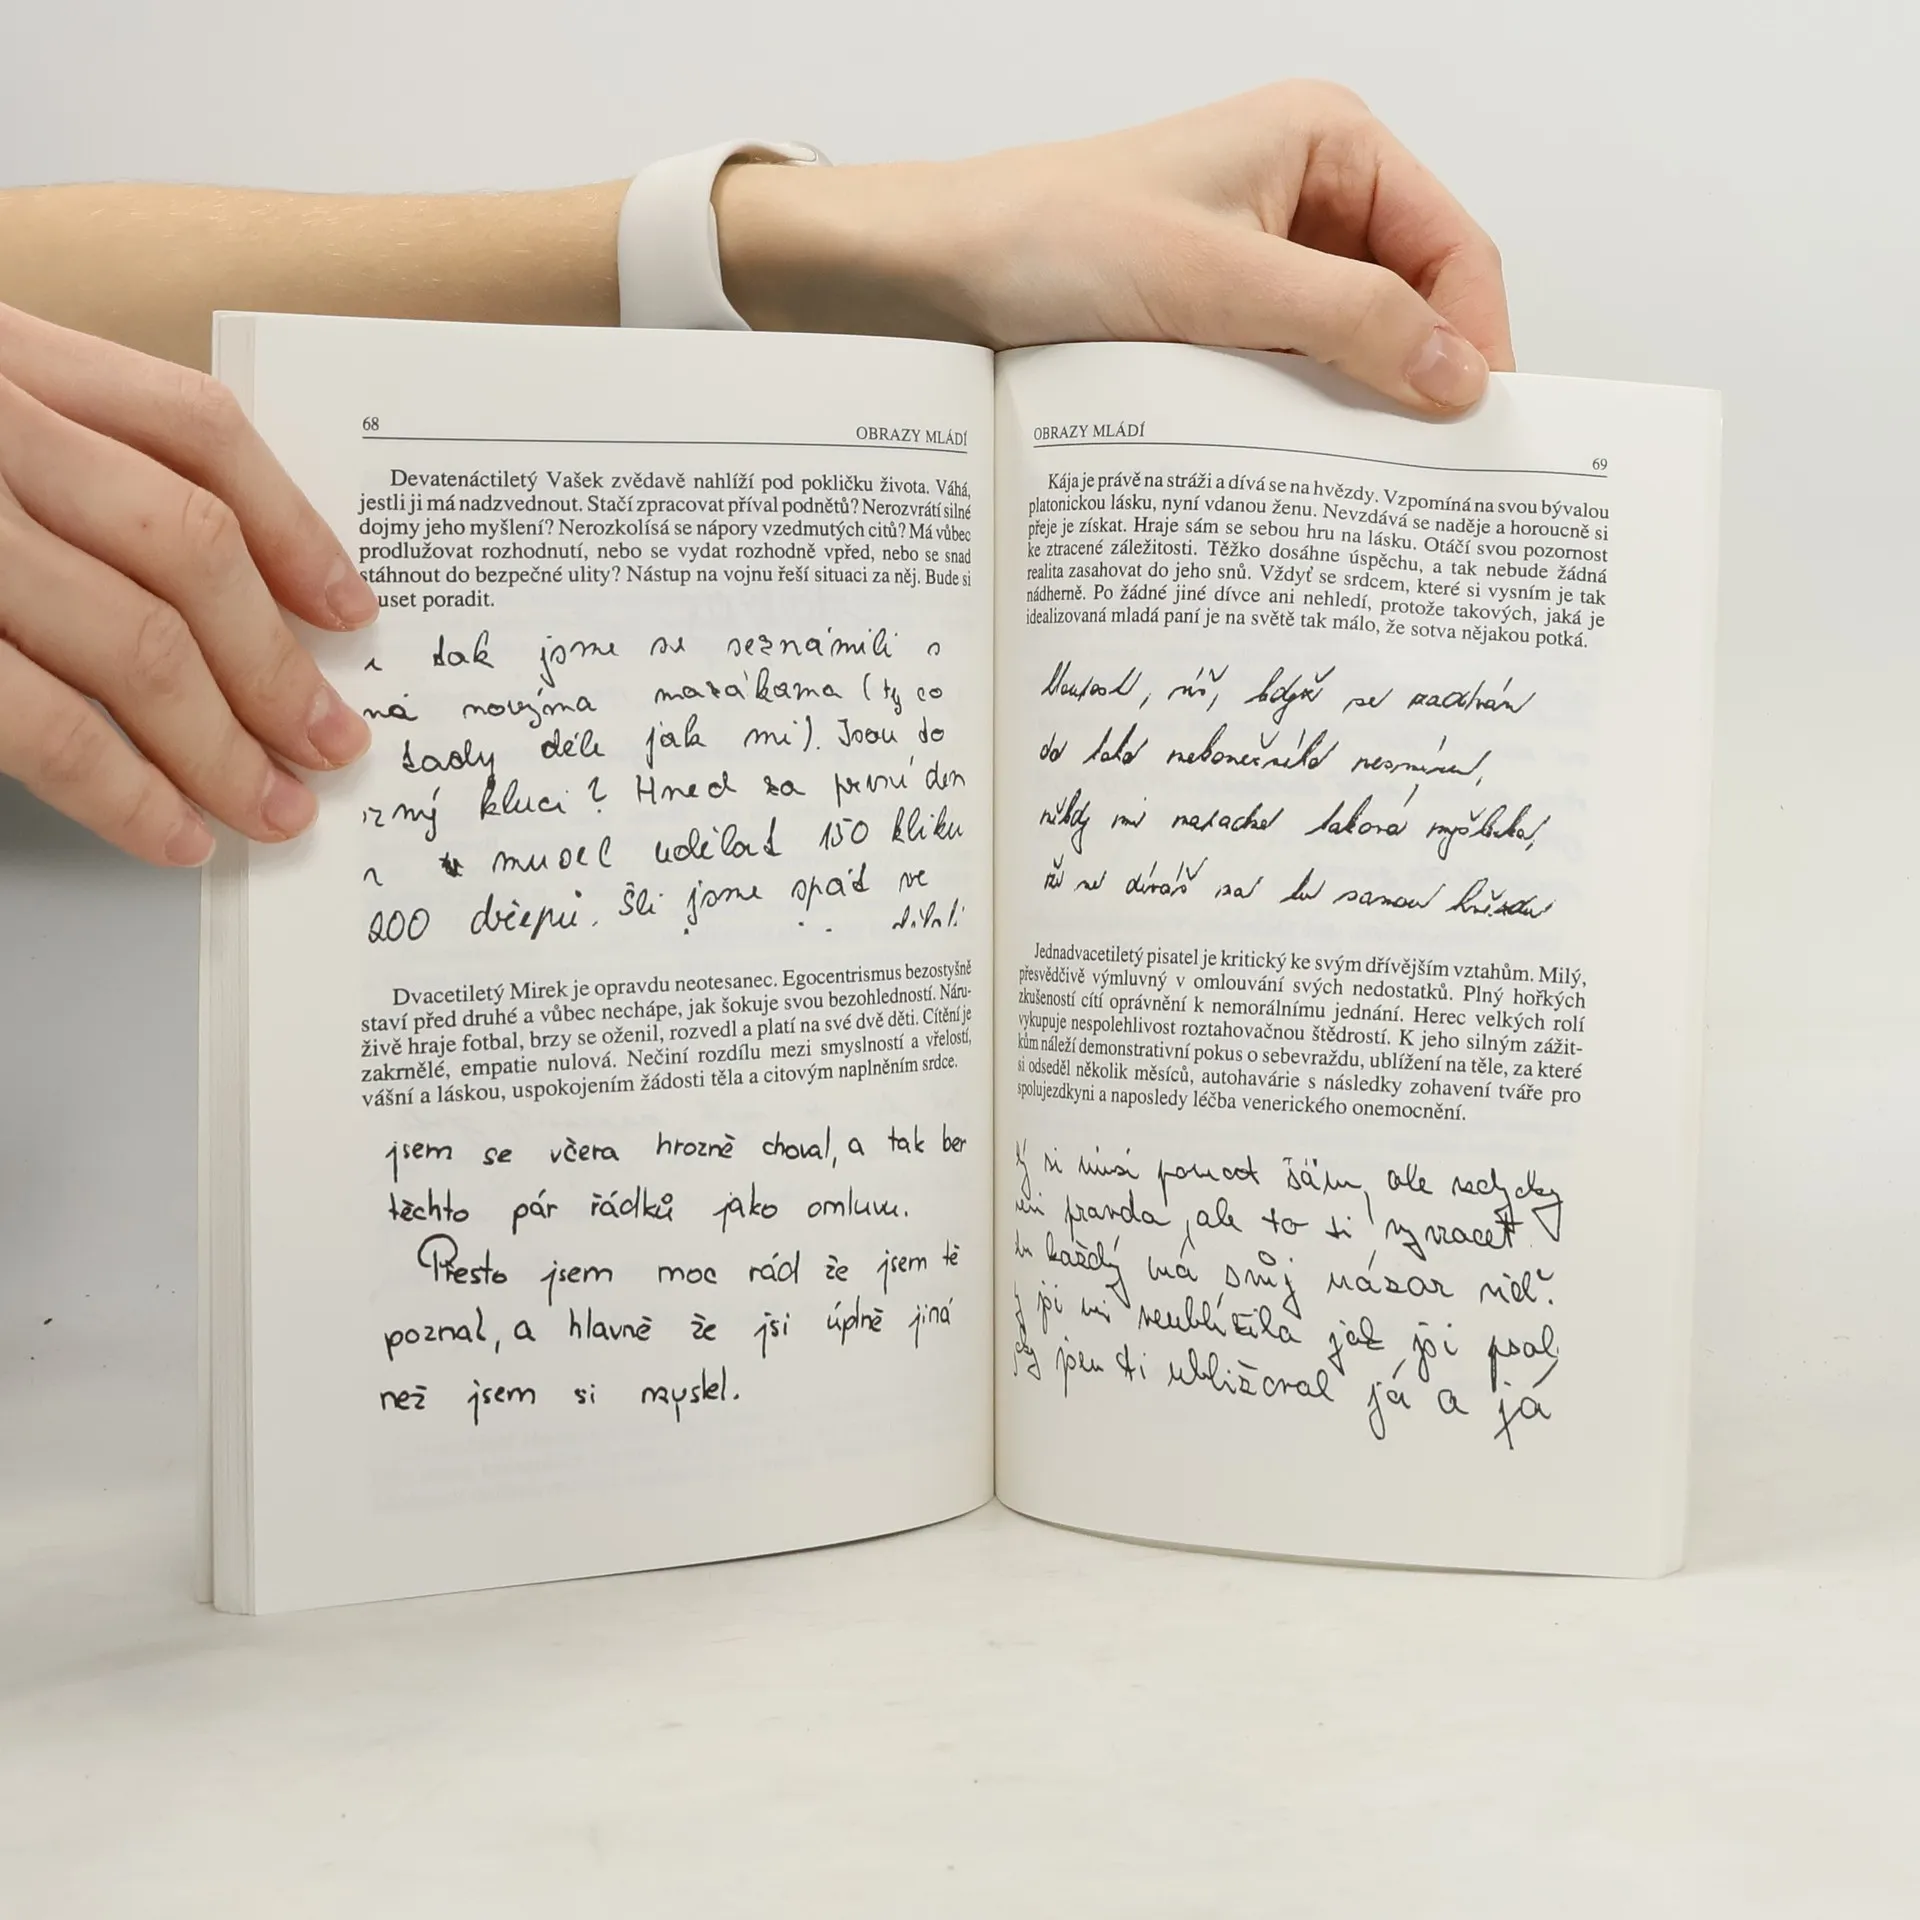 68
OBRAZY MLÁDÍ
Devatenáctiletý Vašek zvědavě nahlíží pod pokličku života. Váhá,
jestli ji má nadzvednout. Stačí zpracovat příval podnětů? Nerozvrátí silné
dojmy jeho myšlení? Nerozkolísá se nápory vzedmutých citů? Má vůbec
prodlužovat rozhodnutí, nebo se vydat rozhodně vpřed, nebo se snad
stáhnout do bezpečné ulity? Nástup na vojnu řeší situaci za něj. Bude si
uset poradit.
tak jsme se seznámili s
novýma mazákama (ty co
tady déle jak mi). Jsou to
kluci? Hned za první den
musel udělat 150 kliku
200 dřepů. Šli jsme spát ve
Dvacetiletý Mirek je opravdu neotesanec. Egocentrismus bezostyšně
staví před druhé a vůbec nechápe, jak šokuje svou bezohledností. Náru-
živě hraje fotbal, brzy se oženil, rozvedl a platí na své dvě děti. Cítění je
zakrnělé, empatie nulová. Nečiní rozdílu mezi smyslností a vřelostí,
vášní a láskou, uspokojením žádosti těla a citovým naplněním srdce.
jsem se včera hrozně choval, a tak ber
těchto pár řádků jako omluvu.
Přesto jsem moc rád že jsem tě
poznal, a hlavně že jsi úplně jiná
než jsem si myslel.
OBRAZY MLÁDÍ
69
Kája je právě na stráži a dívá se na hvězdy. Vzpomíná na svou bývalou
platonickou lásku, nyní vdanou ženu. Nevzdává se naděje a horoucně si
přeje je získat. Hraje sám se sebou hru na lásku. Otáčí svou pozornost
ke ztracené záležitosti. Těžko dosáhne úspěchu, a tak nebude žádná
realita zasahovat do jeho snů. Vždyť se srdcem, které si vysním je tak
nádherně. Po žádné jiné dívce ani nehledí, protože takových, jaká je
idealizovaná mladá paní je na světě tak málo, že sotva nějakou potká.
víš, když se zadívám
do toho nekonečného nesmíru,
někdy mi taková myšlenka,
že se díváš na tu samou hvězdu
Jednadvacetiletý pisatel je kritický ke svým dřívějším vztahům. Milý,
přesvědčivě výmluvný v omlouvání svých nedostatků. Plný hořkých
zkušeností cítí oprávnění k nemorálnímu jednání. Herec velkých rolí
vykupuje nespolehlivost roztahovačnou štědrostí. K jeho silným zážit-
kům náleží demonstrativní pokus o sebevraždu, ublížení na těle, za které
si odseděl několik měsíců, autohavárie s následky zohavení tváře pro
spolujezdkyni a naposledy léčba venerického onemocnění.
si musí pomoct sám, ale vždycky
není pravda, ale to ti vyvracet
každý má svůj názor viď?
jsi mi neublížila jak jsi psal
jsem ti ubližoval já a já